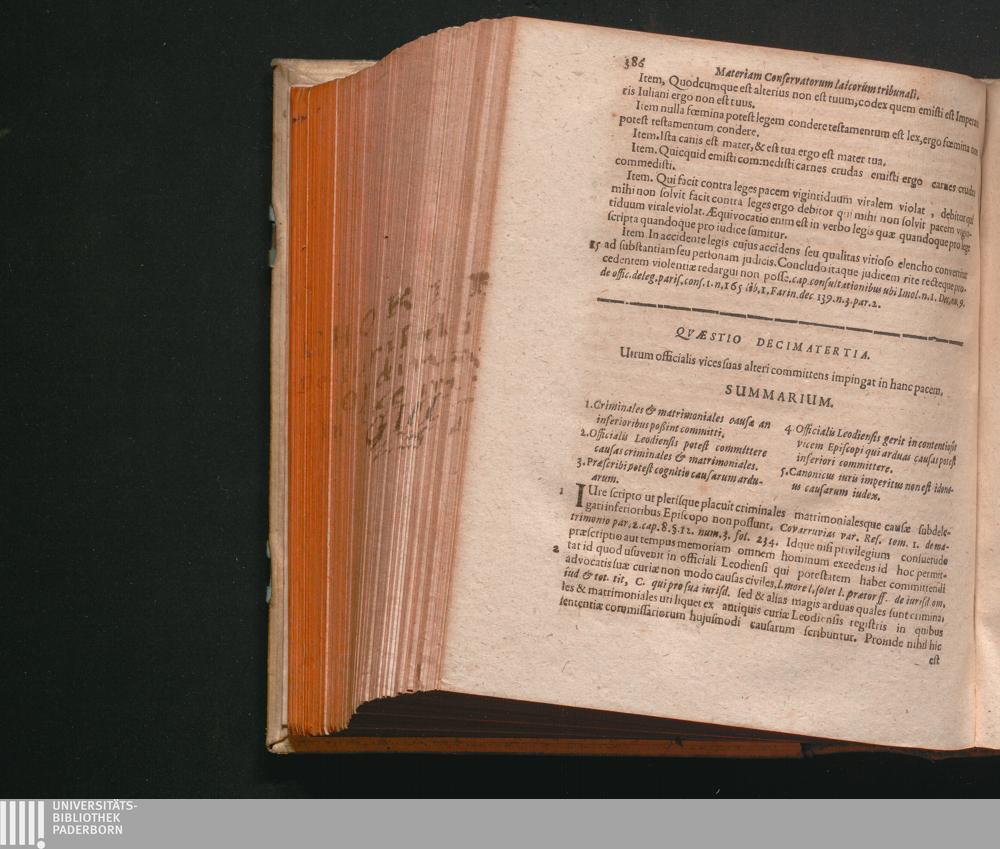 386
Materiam Conservatorum laicorum tribunali.
Item, Quodcumque est alterius non est tuum, codex quem emisti est Impera-
ris Iuliani ergo non est tuus.
Item nulla fœmina potest legem condere testamentum est lex, ergo fœmina non
potest testamentum condere.
Item. Ista canis est mater, & est tua ergo est mater tua.
Item. Quicquid emisti commedisti carnes crudas emisti ergo carnes crudas
commedisti.
Item. Qui facit contra leges pacem vigintiduum viralem violat, debitor qui
mihi non solvit facit contra leges ergo debitor qui mihi non solvit pacem vigin-
tiduum virale violat. Æquivocatio enim est in verbo legis quæ quandoque pro lege
scripta quandoque pro iudice sumitur.
Item In accidente legis cujus accidens seu qualitas vitioso elencho convenitur
15 ad substantiam seu personam judicis. Concludo itaque judicem rite recteque pro-
cedentem violentiæ redargui non posse. cap. consultationibus ubi Imol. n. 1.
de offic. deleg. paris. cons. 1. n. 165 lib. 1. Farin. dec 139. n. 3. par. 2.
QVÆSTIO DECIMATERTIA.
Utrum officialis vices suas alteri committens impingat in hanc pacem,
SUMMARIUM.
1. Criminales & matrimoniales causæ an
inferioribus possint committi.
2. Officialis Leodiensis potest committere
causas criminales & matrimoniales.
3. Præscribi potest cognitio causarum ardu-
arum.
4. Officialis Leodiensis gerit in contentiosis
vicem Episcopi qui arduas causas potest
inferiori committere.
5. Canonicus iuris imperitus non est idone-
us causarum iudex.
1 IUre scripto ut plerisque placuit criminales matrimonialesque causæ subdele-
gari inferioribus Episcopo non possunt. Covarruvias var. Res. tom. 1. de ma-
trimonio par. 2. cap. 8. §. 12. num. 3. fol. 234. Idque nisi privilegium consuetudo
præscriptio aut tempus memoriam omnem hominum excedens id hoc permit-
2 tat id quod usuvenit in officiali Leodiensi qui potestatem habet committendi
advocatis suæ curiæ non modo causas civiles, l. more l. solet l. prætor ff. de iurisd. om.
iud & tot. tit, C. qui pro sua iurisd. sed & alias magis arduas quales sunt crimina-
les & matrimoniales uti liquet ex antiquis curiæ Leodiensis registris in quibus
sententiæ commissariorum hujusmodi causarum scribuntur. Proinde nihil hic
est
UNIVERSITÄTS-
BIBLIOTHEK
PADERBORN